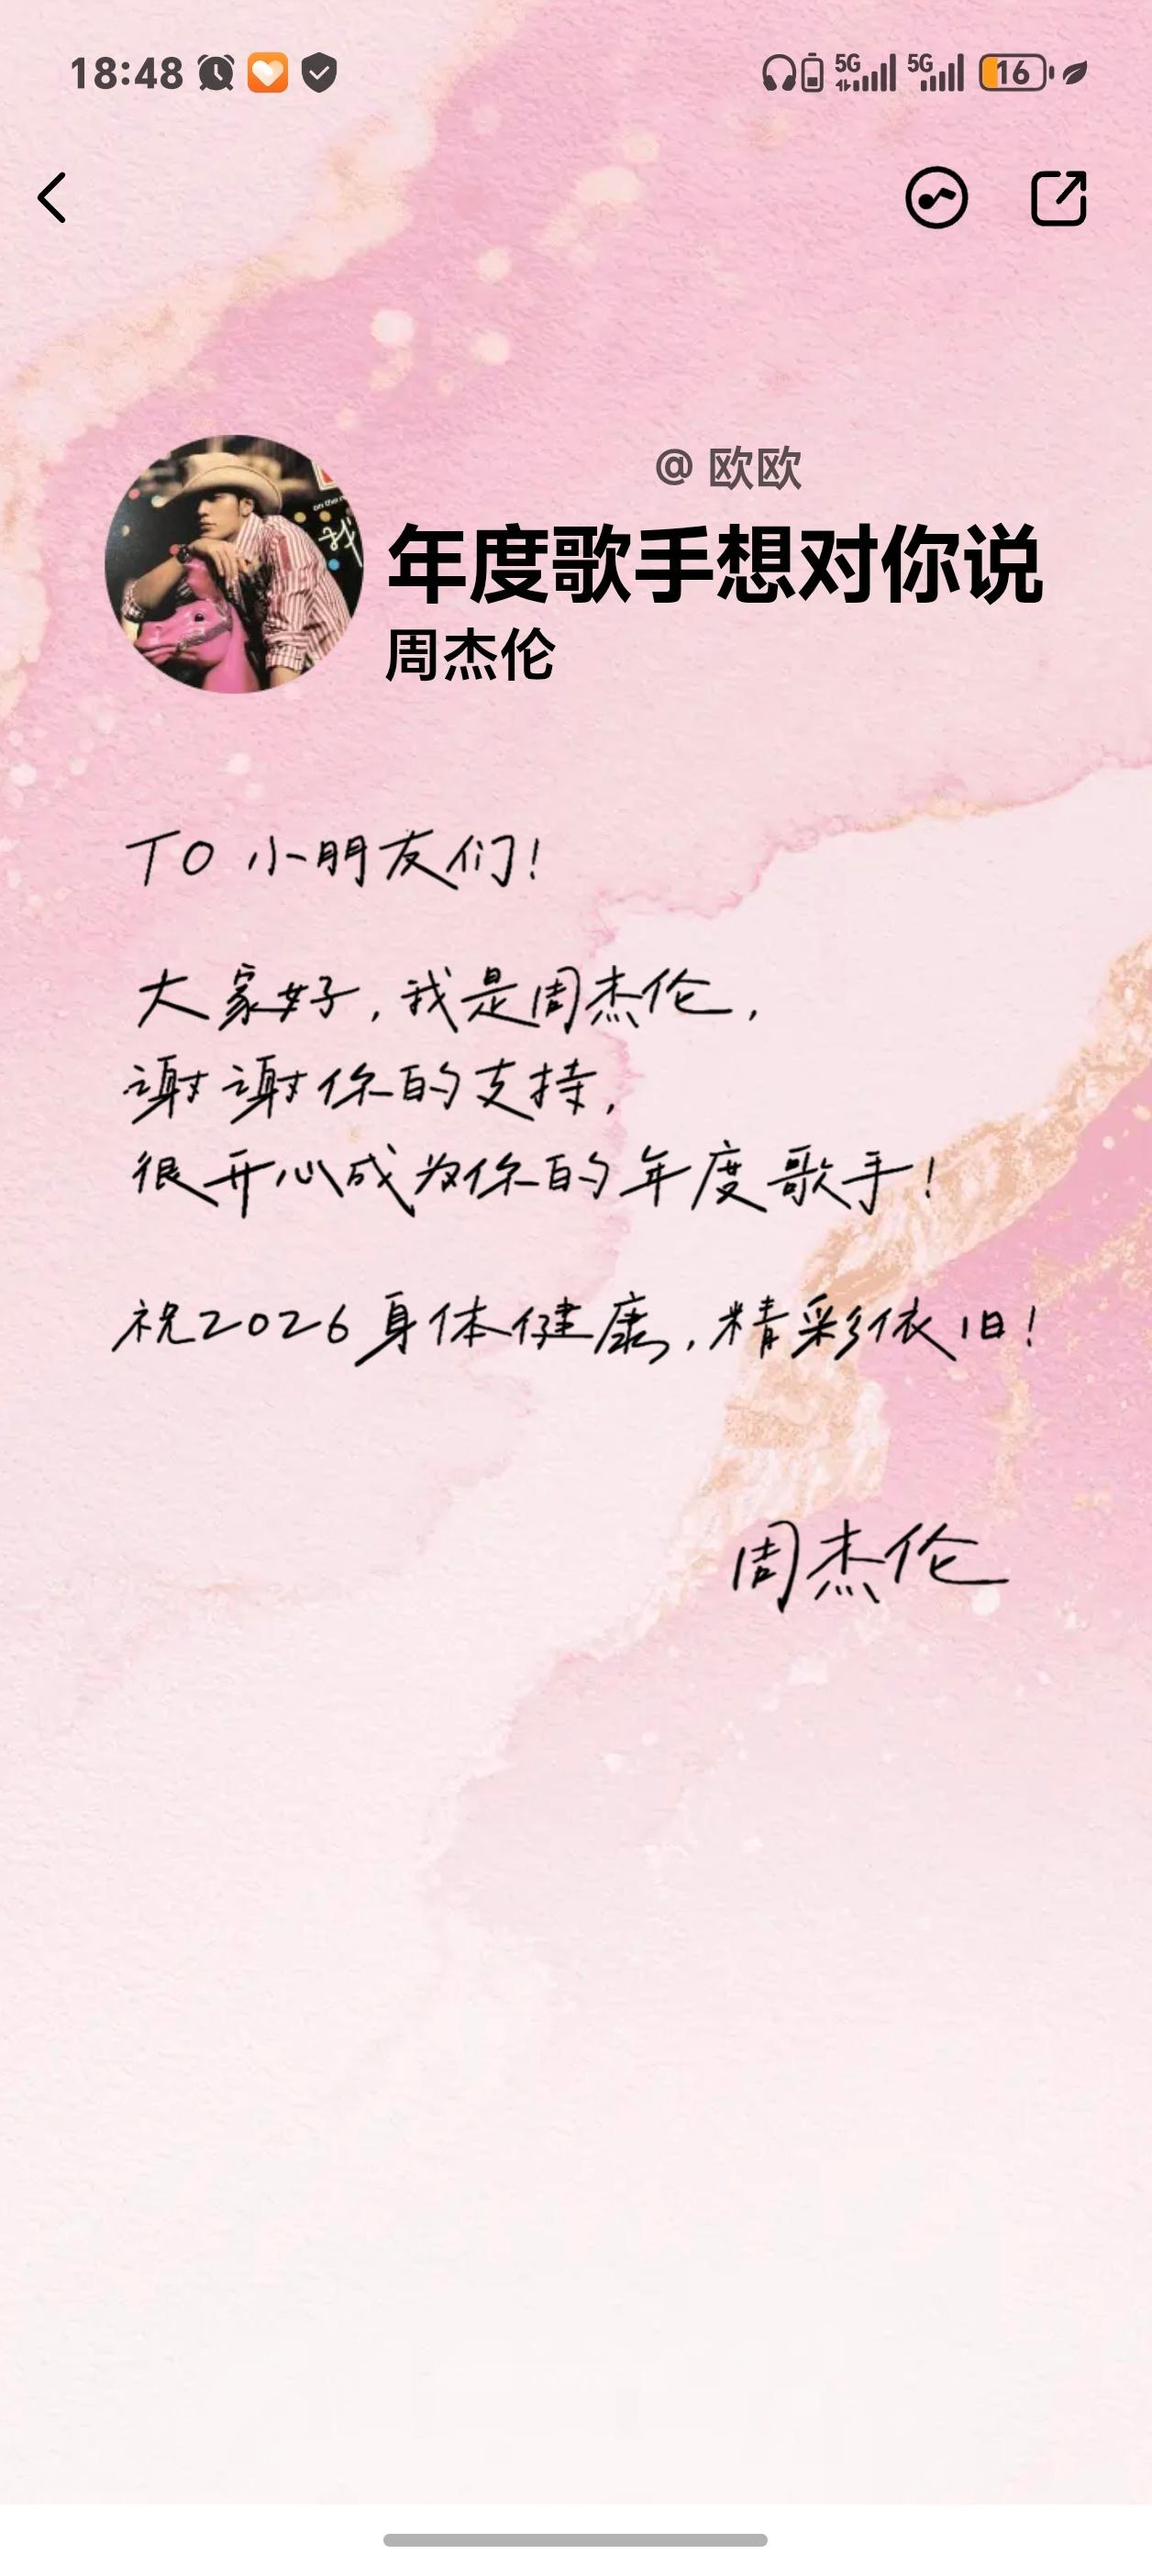 18:48
5G 5G 16
on the
我
@ 欧欧
年度歌手想对你说
周杰伦
TO 小朋友们!
大家好,我是周杰伦,
谢谢你的支持,
很开心成为你的年度歌手!
祝2026身体健康,精彩依旧!
周杰伦